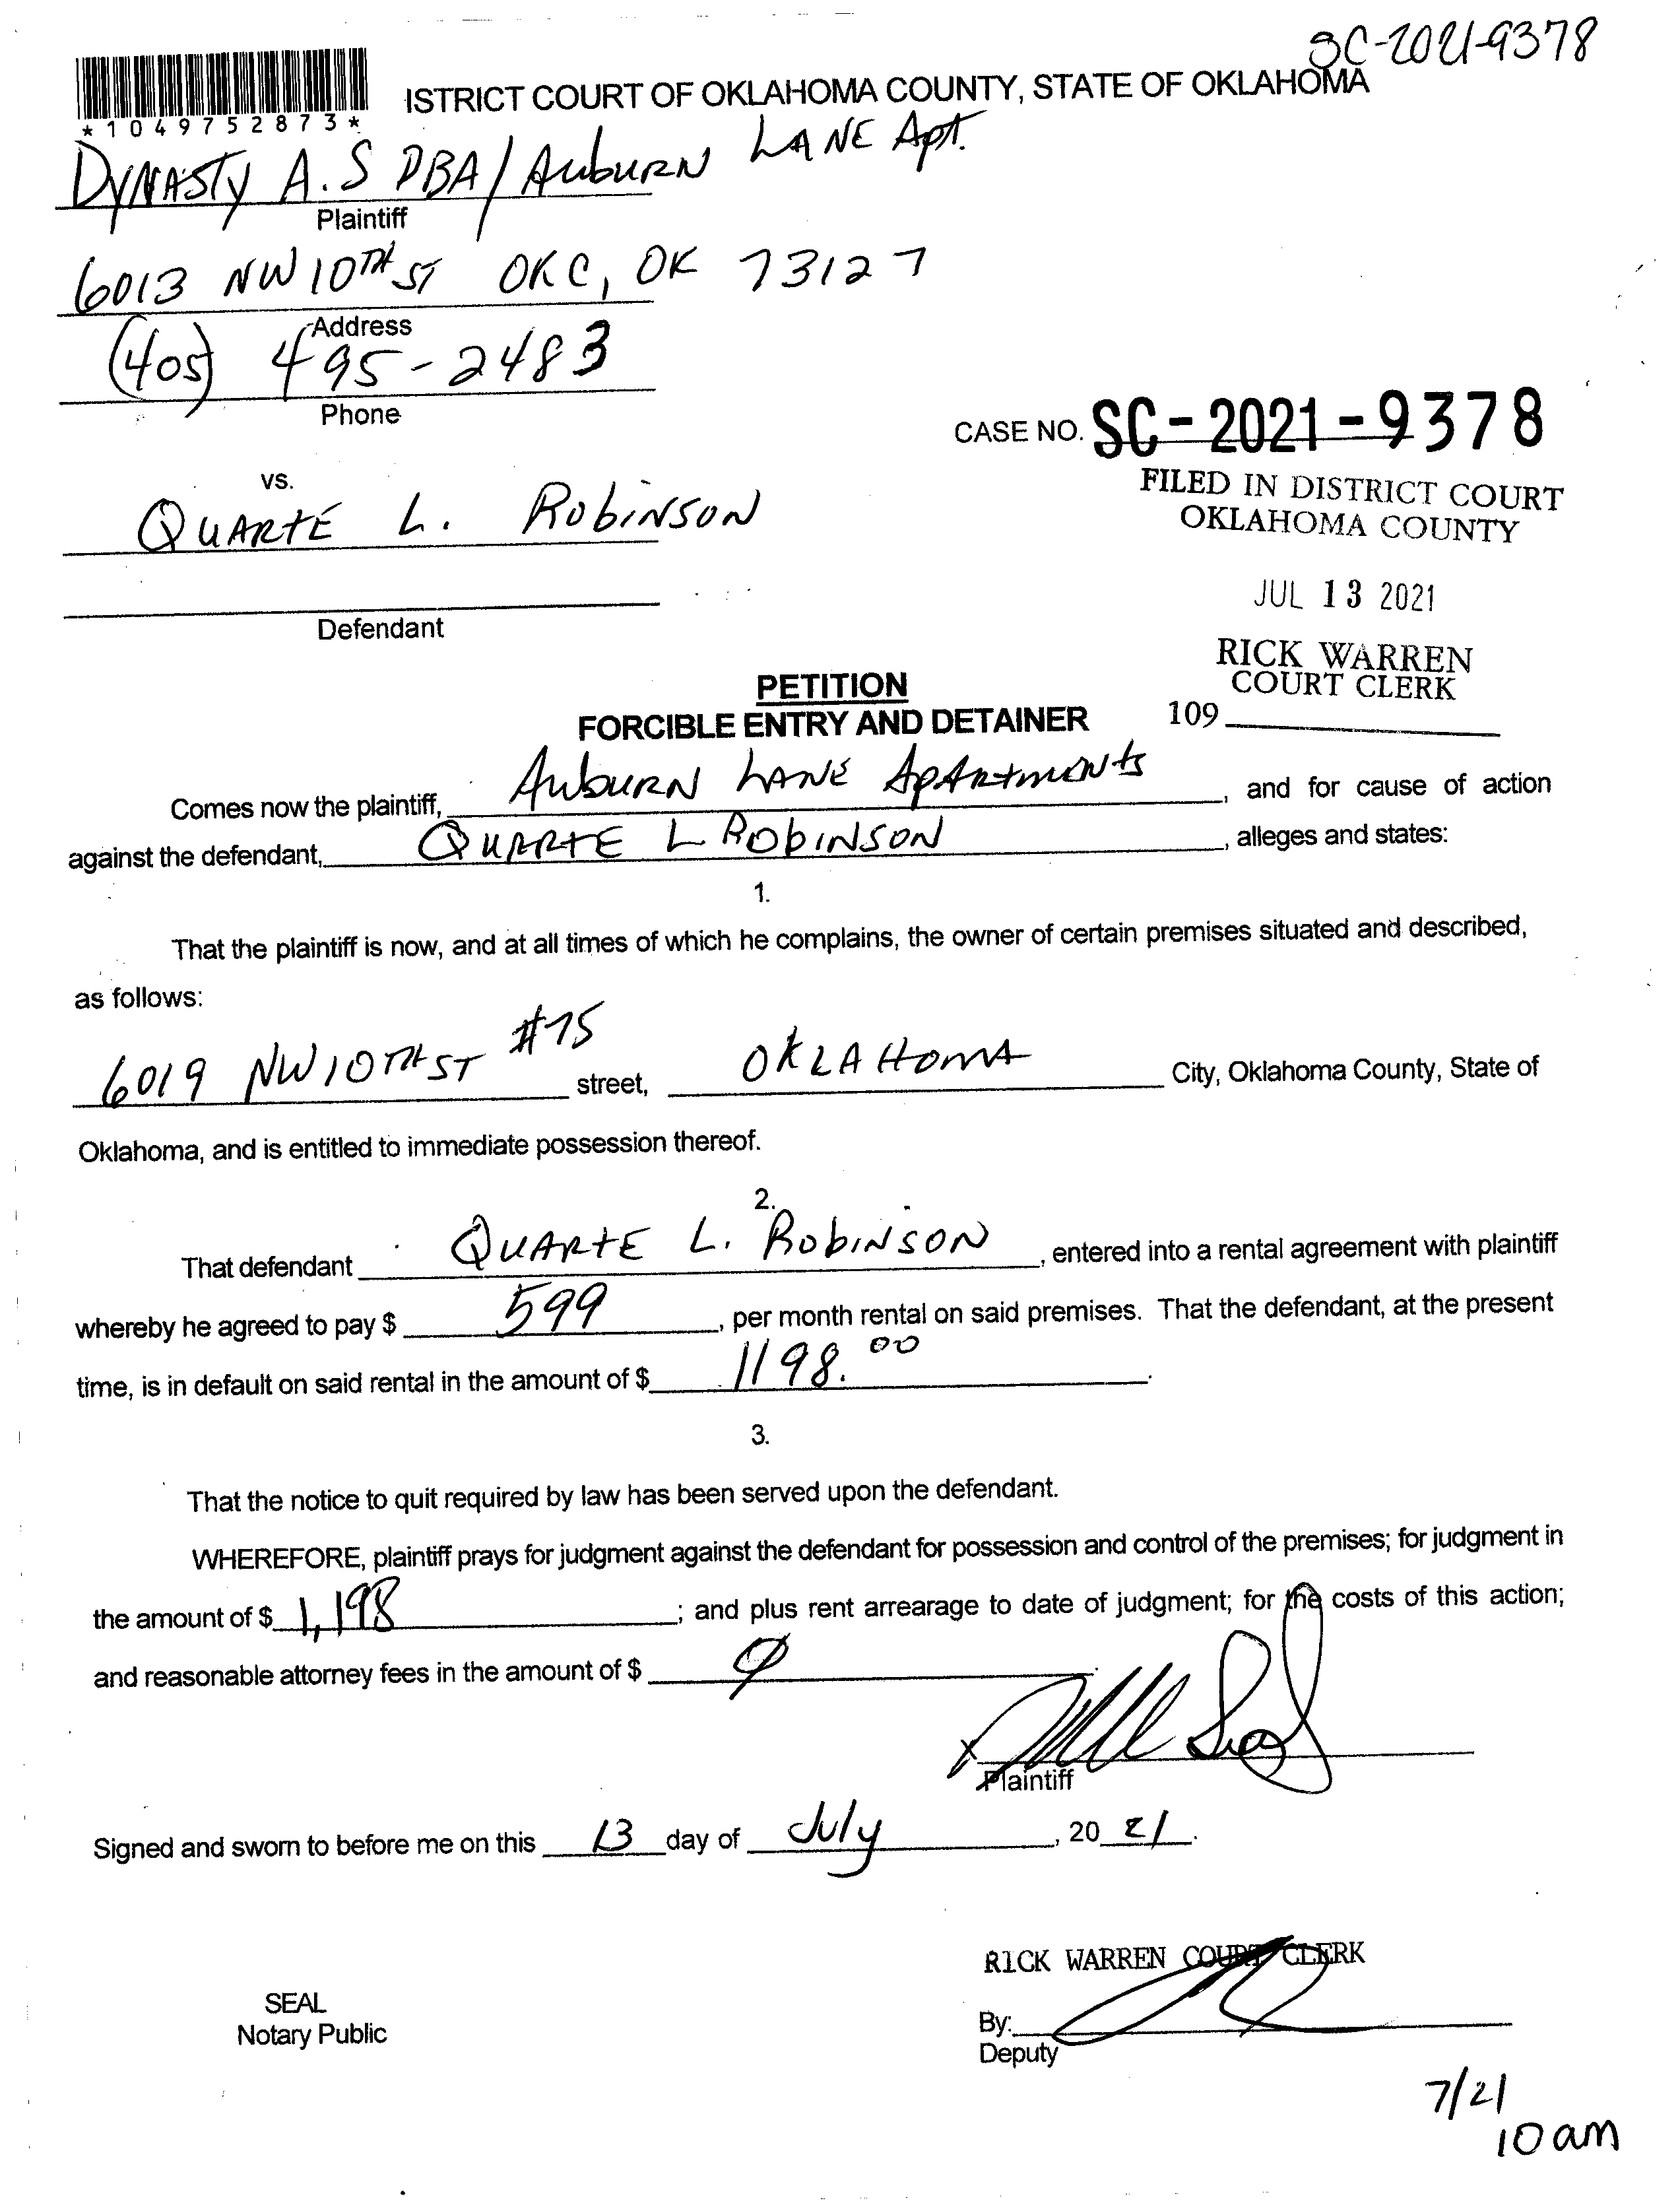 SC-2021-9378
ISTRICT COURT OF OKLAHOMA COUNTY, STATE OF OKLAHOMA
*1049752873*
DYNASTY A.S DBA/AubuRN LANE Apt.
Plaintiff
6013 NW 10TH ST OKC, OK 73127
Address
(405) 495-2483
Phone
CASE NO. SC-2021-9378
FILED IN DISTRICT COURT
OKLAHOMA COUNTY
vs.
QUARTE L. RobiNSON
JUL 13 2021
Defendant
RICK WARREN
COURT CLERK
109
PETITION
FORCIBLE ENTRY AND DETAINER
Comes now the plaintiff, AubuRN LANE ApARtmENts, and for cause of action
against the defendant, QUARTE L RobiNSON, alleges and states:
1.
That the plaintiff is now, and at all times of which he complains, the owner of certain premises situated and described,
as follows:
6019 NW 10TH ST #75 street, OKLAHOMA City, Oklahoma County, State of
Oklahoma, and is entitled to immediate possession thereof.
2.
That defendant QUARTE L. RobiNSON, entered into a rental agreement with plaintiff
whereby he agreed to pay $ 599, per month rental on said premises. That the defendant, at the present
time, is in default on said rental in the amount of $ 1198.00.
3.
That the notice to quit required by law has been served upon the defendant.
WHEREFORE, plaintiff prays for judgment against the defendant for possession and control of the premises; for judgment in
the amount of $ 1,198; and plus rent arrearage to date of judgment; for the costs of this action;
and reasonable attorney fees in the amount of $
X
Plaintiff
Signed and sworn to before me on this 13 day of July, 20 21.
RICK WARREN COURT CLERK
SEAL
Notary Public
By:
Deputy
7/21
10 am